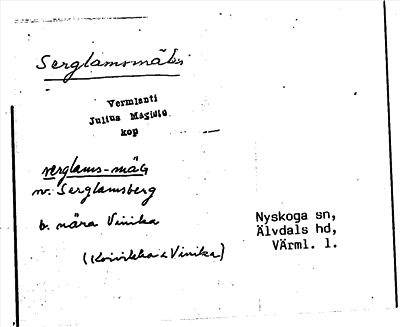 Serglamsmäki
Vermlanti
Julius Mägiste
kop
serglams-mäG
nv. Serglamsberg
b. nära Vinika
(Koivikka & Vinika)
Nyskoga sn,
Älvdals hd,
Värml. l.